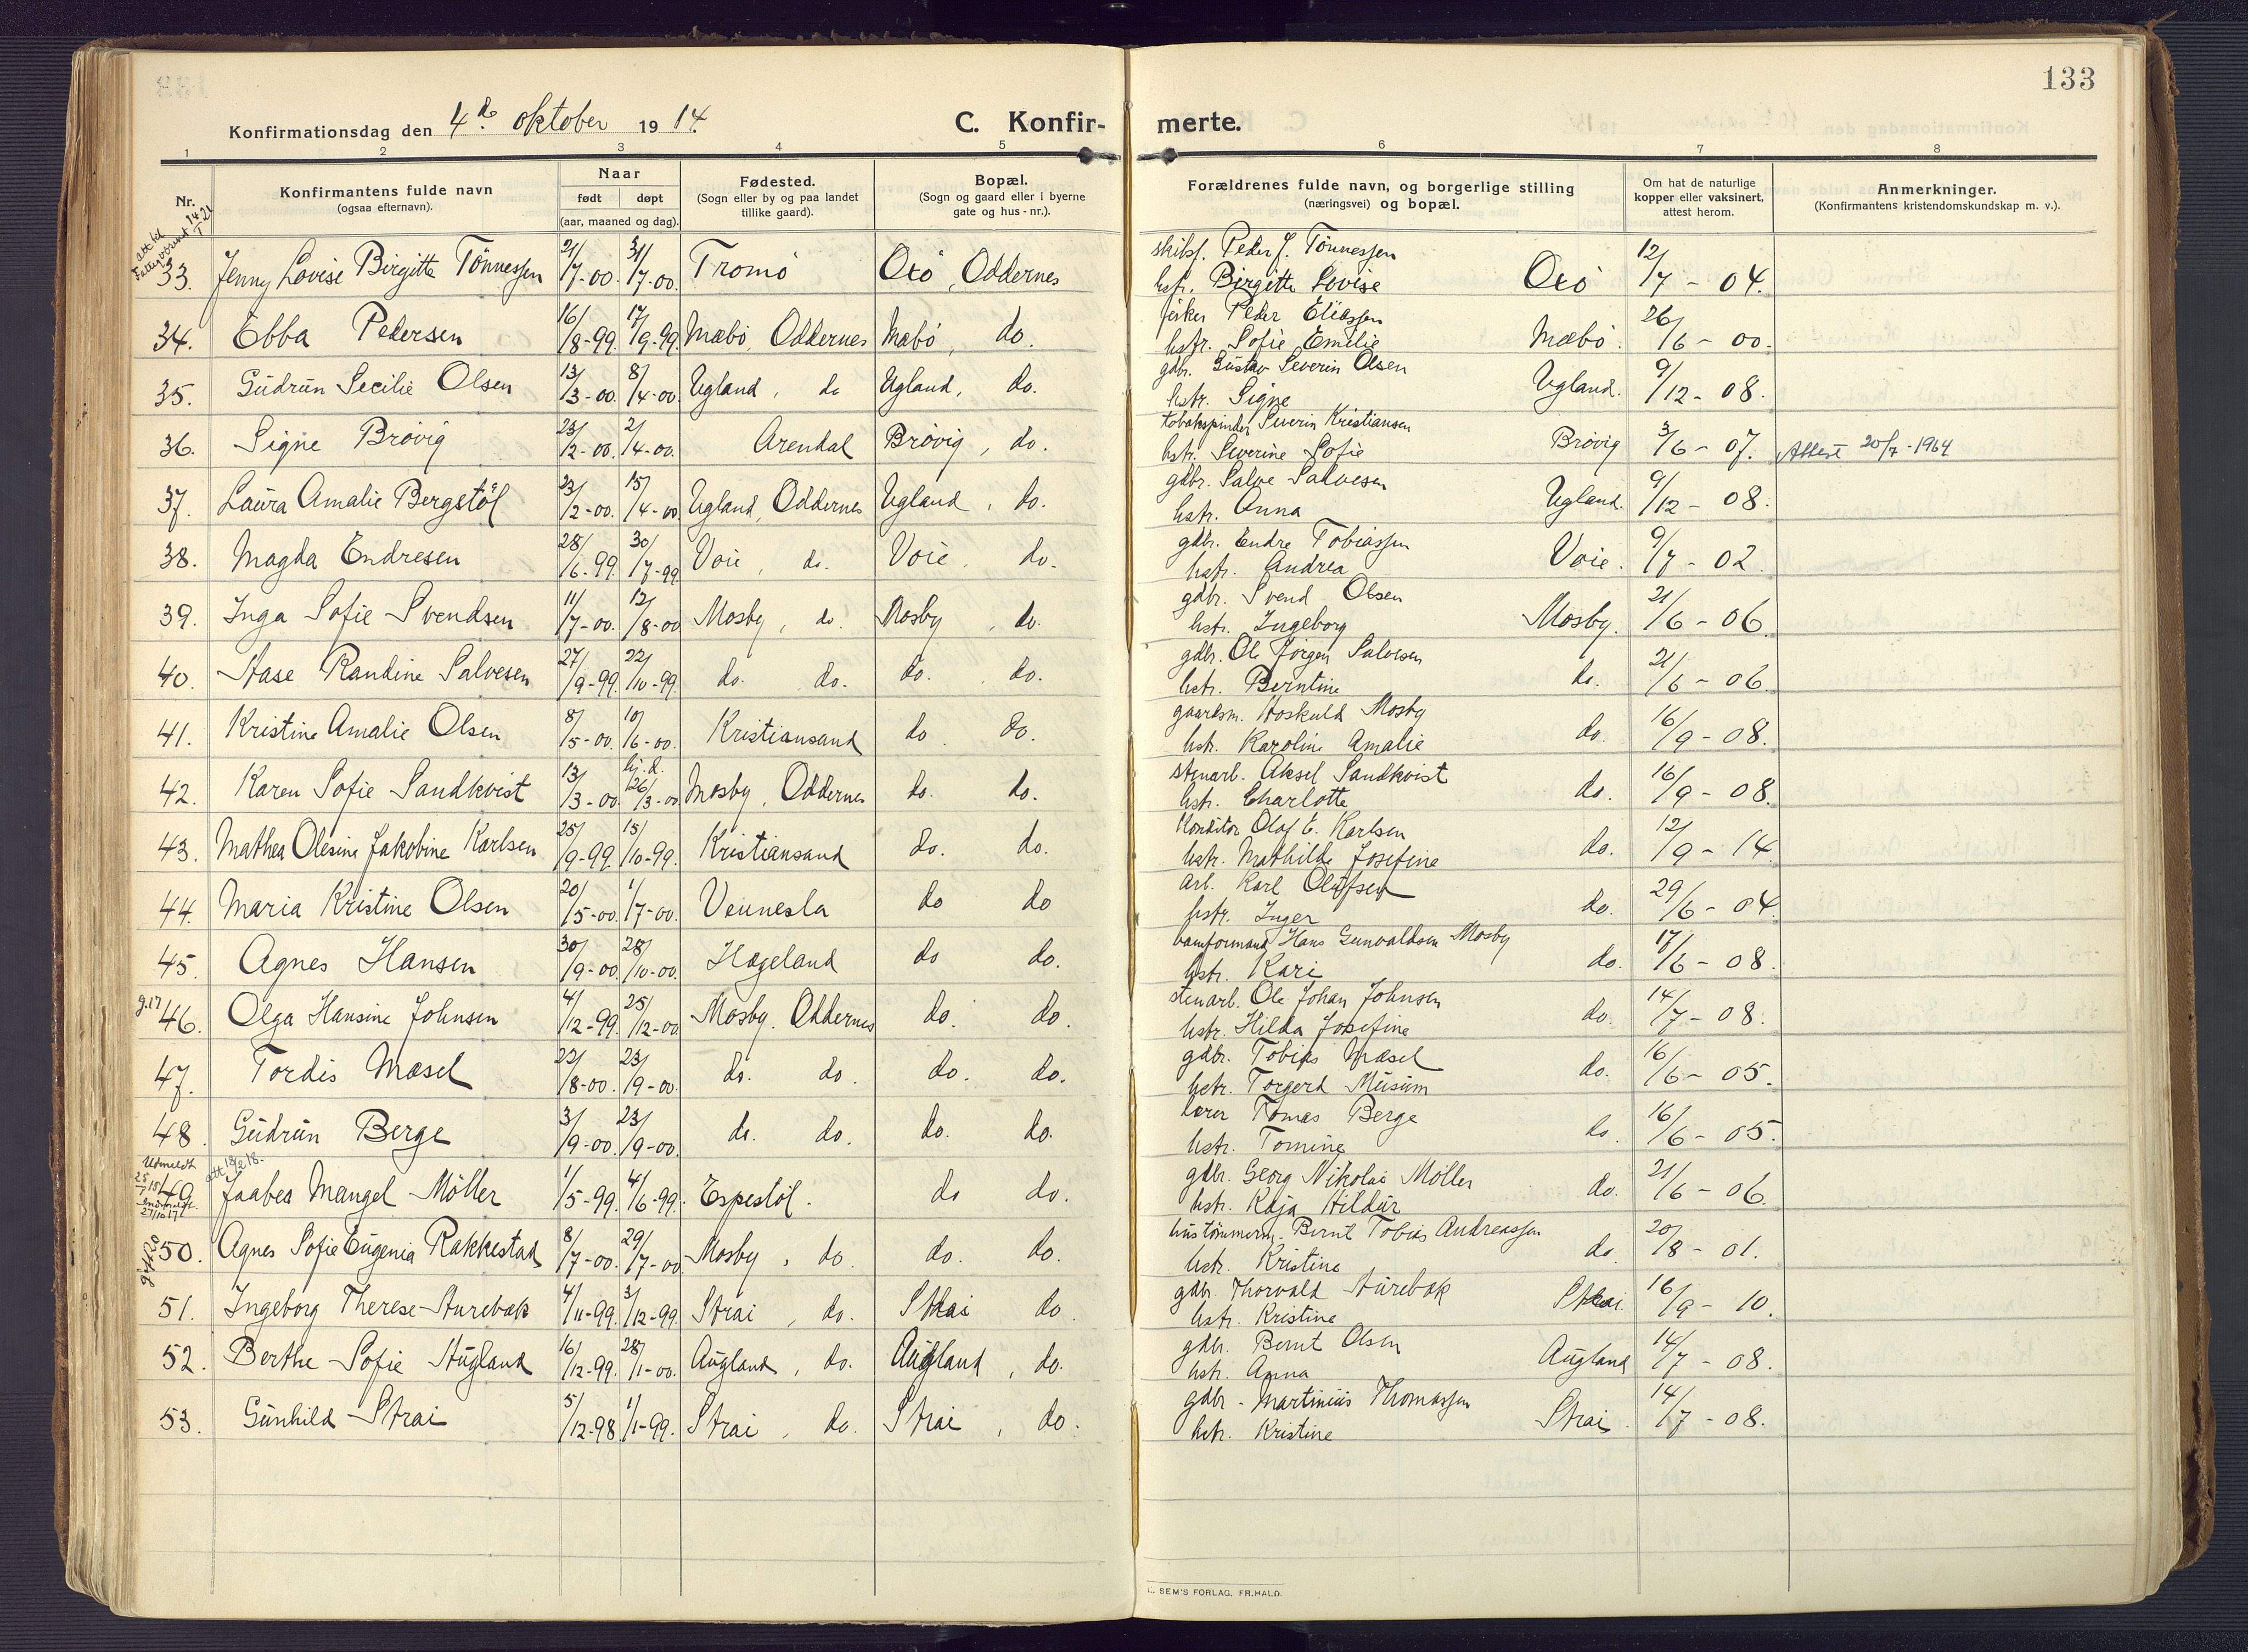 133
Konfirmationsdag den 4de oktober 1914.
C. Konfir- merte.
1 2 3 4 5 6 7 8
Nr.
Konfirmantens fulde navn
(ogsaa efternavn).
Naar
født døpt
(aar, maaned og dag).
Fødested.
(Sogn eller by og paa landet
tillike gaard).
Bopæl.
(Sogn og gaard eller i byerne
gate og hus-nr.).
Forældrenes fulde navn, og borgerlige stilling
(næringsvei) og bopæl.
Om hat de naturlige
kopper eller vaksinert,
attest herom.
Anmerkninger.
(Konfirmantens kristendomskundskap m. v.).
33. Jenny Lovise Birgitte Tönnessen 21/7-00. 31/7-00. Tromö Oxö, Oddernes skibsf. Peder J. Tönnessen
hstr. Birgitte Lovise Oxö 12/7 - 04.
34. Ebba Pedersen 16/8-99. 17/9-99. Mæbö, Oddernes Mæbö, do. fisker Peder Eliassen
hstr. Sofie Emilie Mæbö. 26/6 - 00.
35. Gudrun Secilie Olsen 13/3-00. 8/4-00. Ugland, do Ugland, do. gdbr. Gustav Severin Olsen
hstr. Signe Ugland. 9/12 - 08.
36. Signe Brövig 23/12-00. 2/4-00. Arendal Brövig, do. tobakspinder Severin Kristiansen
hstr. Severine Sofie Brövig 3/6 - 07. Attest 20/7-1964
37. Laura Amalie Bergstöl 23/2-00. 15/4-00 Ugland, Oddernes Ugland, do. gdbr. Salve Salvesen
hstr. Anna Ugland. 9/12 - 08.
38. Magda Endresen 28/6-99. 30/7-99 Voie, do. Voie, do. gdbr. Endre Tobiassen
hstr. Andrea Voie. 9/7 - 02
39. Inga Sofie Svendsen 11/7-00. 12/8-00 Mosby, do. Mosby, do. gdbr. Svend Olsen
hstr. Ingeborg Mosby. 21/6 - 06.
40. Aase Randine Salvesen 27/9-99. 22/10-99. do. do. do. do. gdbr. Ole Jörgen Salvesen
hstr. Berntine do. 21/6 - 06.
41. Kristine Amalie Olsen 8/5-00. 10/6-00. Kristiansand do. do. gaardsm. Hoskuld Mosby
hstr. Karoline Amalie do. 16/9 - 08.
42. Karen Sofie Sandkvist 13/3-00. hj. d. 26/3-00 Mosby, Oddernes do. do. stenarb. Aksel Sandkvist
hstr. Charlotte do. 16/9 - 08.
43. Mathea Olesine Jakobine Karlsen 25/9-99. 15/10-99. Kristiansand do. do. Konditor Olaf E. Karlsen
hstr. Mathilde Josefine do. 12/9 - 14
44. Maria Kristine Olsen 20/5-00. 1/7-00. Vennesla do do arb. Karl Olufsen
hstr. Inger do. 29/6 - 04
45. Agnes Hansen 30/9-00. 28/10-00. Hægeland do do. Hans Gunvaldsen Mosby
hstr. Kari do. 17/6 - 08.
g.17 46. Olga Hansine Johnsen 4/12-99. 25/12-00 Mosby. Oddernes do. do. stenarb. Ole Johan Johnsen
hstr. Hilda Josefine do. 14/7 - 08.
47. Tordis Mæsel 22/8-00. 23/9-00. do. do. do. do. gdbr. Tobias Mæsel
hstr. Torgerd Musum do. 16/6 - 05.
48. Gudrun Berge 3/9-00. 23/9-00. do. do. do. do. lærer Tomas Berge
hstr. Tomine do. 16/6 - 05.
Udmeldt
49. Jaabea Mangel Möller 1/5-99. 4/6-99. Espestöl. do do. gdbr. Georg Nikolai Möller
hstr. Kaja Hildur do. 21/6 - 06.
gift 20 50. Agnes Sofie Eugenia Rakkestad 8/7-00. 29/7-00 Mosby, do. do. do. hustömmerm. Bernt Tobias Andreassen
hstr. Kristine do. 20/8 - 01.
51. Ingeborg Therese Aurebæk 4/11-99. 3/12-99. Strai, do. Strai do. gdbr. Thorvald Aurebæk
hstr. Kristine Strai 16/9 - 10.
52. Berthe Sofie Augland 16/12-99. 28/1-00. Augland, do. Augland, do. gdbr. Bernt Olsen
hstr. Anna Augland 14/7 - 08.
53. Gunhild Strai 5/12-98 1/1-99. Strai, do. Strai, do. gdbr. Martinius Thomassen
hstr. Kristine Strai. 14/7 - 08.
SEM'S FORLAG, FR.HALD.